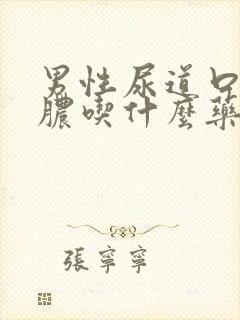 男性尿道口
膿喫什麼藥
張寧寧